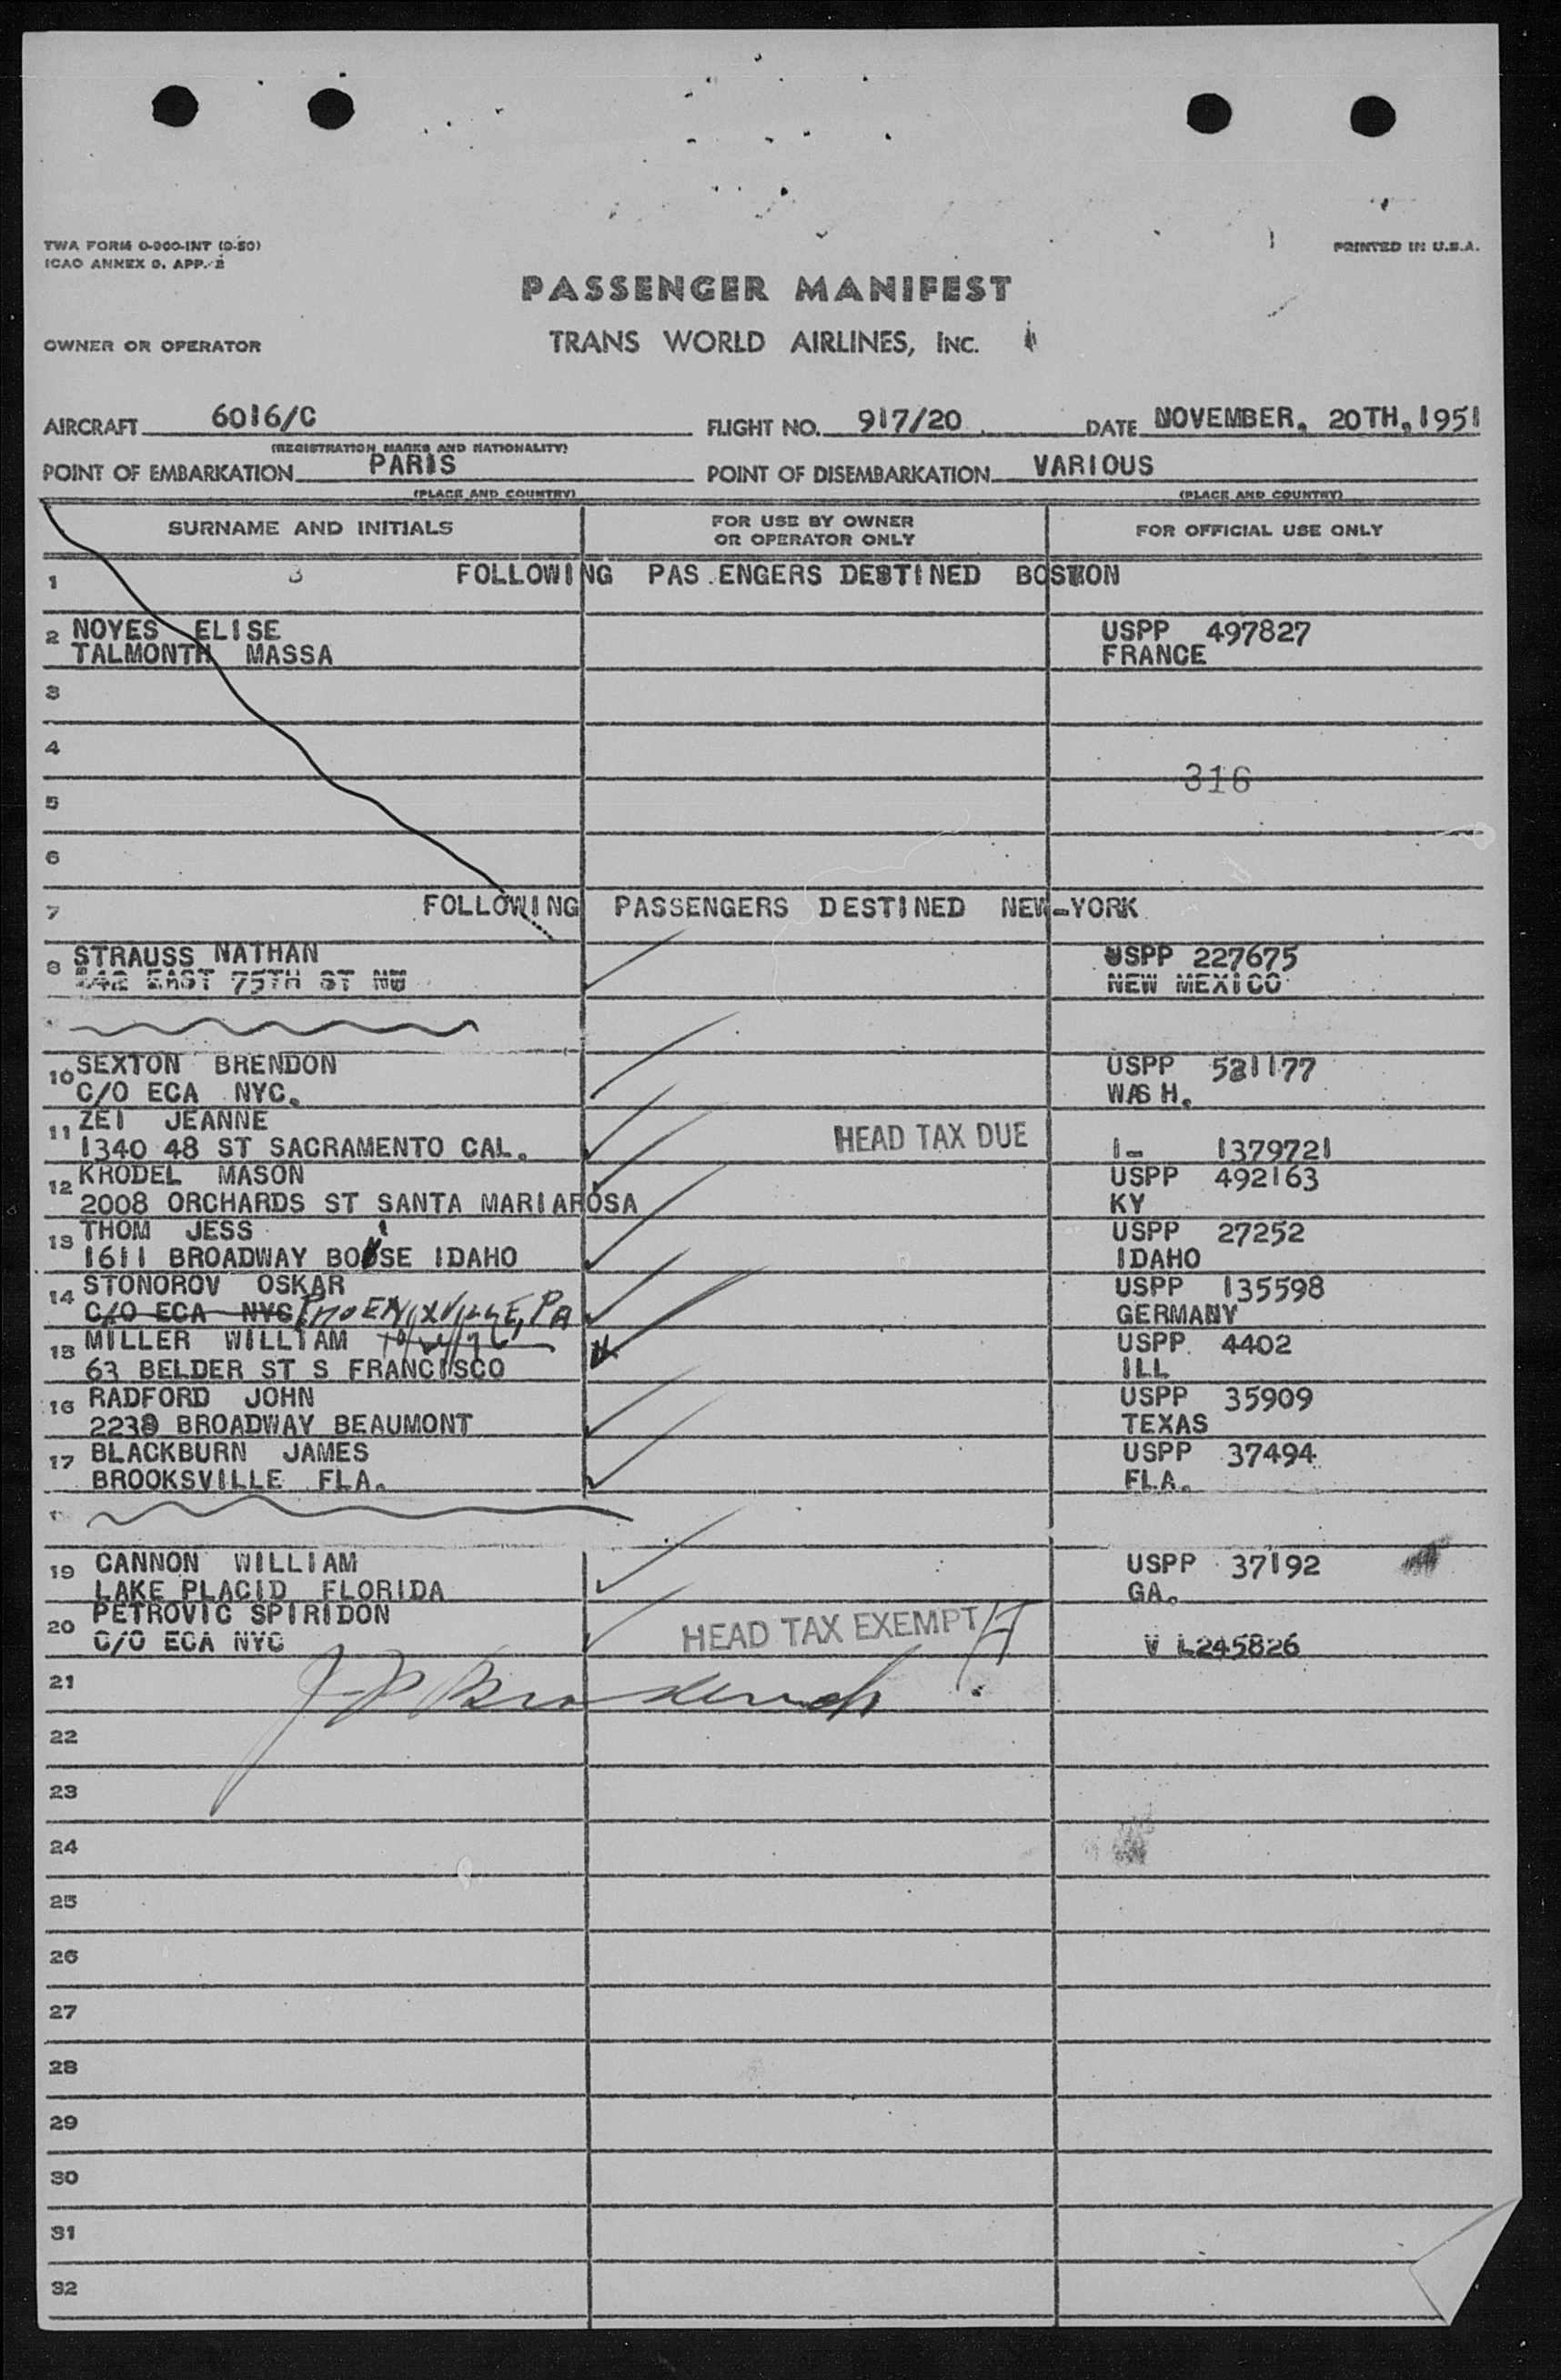 TWA FORM 0-900-INT (9-50)
ICAO ANNEX 9, APP. 2
PRINTED IN U.S.A.
PASSENGER MANIFEST
OWNER OR OPERATOR TRANS WORLD AIRLINES, INC.
AIRCRAFT 6016/C FLIGHT NO. 917/20 DATE NOVEMBER, 20TH, 1951
(REGISTRATION MARKS AND NATIONALITY)
POINT OF EMBARKATION PARIS POINT OF DISEMBARKATION VARIOUS
(PLACE AND COUNTRY) (PLACE AND COUNTRY)
SURNAME AND INITIALS FOR USE BY OWNER OR OPERATOR ONLY FOR OFFICIAL USE ONLY
1 3 FOLLOWING PAS.ENGERS DESTINED BOSTON
2 NOYES ELISE USPP 497827
TALMONTH MASSA FRANCE
3
4
316
5
6
7 FOLLOWING PASSENGERS DESTINED NEW-YORK
8 STRAUSS NATHAN USPP 227675
EAST 75TH ST NEW MEXICO
10 SEXTON BRENDON USPP 521177
C/O ECA NYC. WASH.
11 ZEI JEANNE
1340 48 ST SACRAMENTO CAL. HEAD TAX DUE I- 1379721
12 KRODEL MASON USPP 492163
2008 ORCHARDS ST SANTA MARIAROSA KY
13 THOM JESS USPP 27252
1611 BROADWAY BOISE IDAHO IDAHO
14 STONOROV OSKAR USPP 135598
C/O ECA NYC PHOENIXVILLE, PA GERMANY
15 MILLER WILLIAM USPP. 4402
63 BELDER ST S FRANCISCO ILL
16 RADFORD JOHN USPP 35909
2238 BROADWAY BEAUMONT TEXAS
17 BLACKBURN JAMES USPP 37494
BROOKSVILLE FLA. FLA.
19 CANNON WILLIAM USPP 37192
LAKE PLACID FLORIDA GA.
20 PETROVIC SPIRIDON
C/O ECA NYC HEAD TAX EXEMPT V L245826
21
22
23
24
25
26
27
28
29
30
31
32